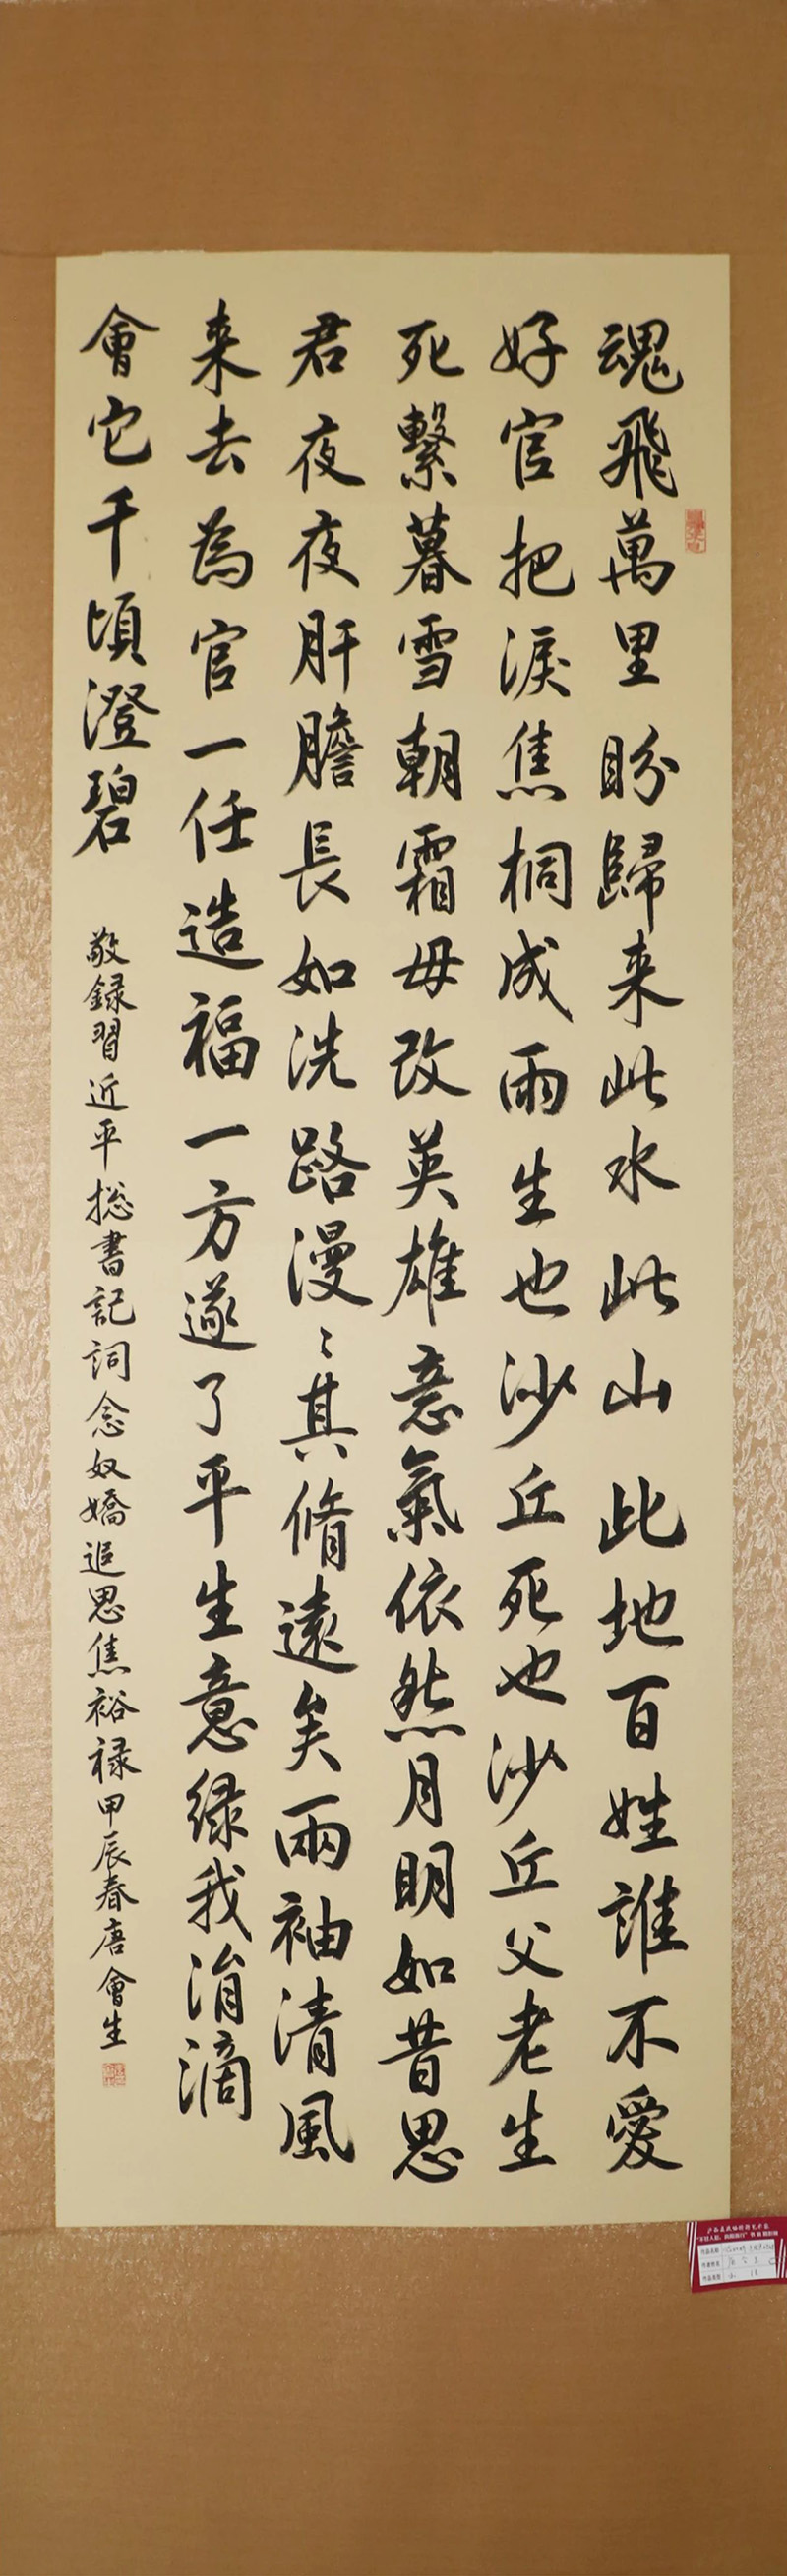 魂飛萬里盼歸来此水此山此地百姓誰不愛
好官把淚焦桐成雨生也沙丘死也沙丘父老生
死繫暮雪朝霜毋改英雄意氣依然月明如昔思
君夜夜肝膽長如洗路漫〻其脩遠矣兩袖清風
来去為官一任造福一方遂了平生意绿我涓滴
會它千頃澄碧
敬録習近平総書記詞念奴嬌追思焦裕禄甲辰春唐會生